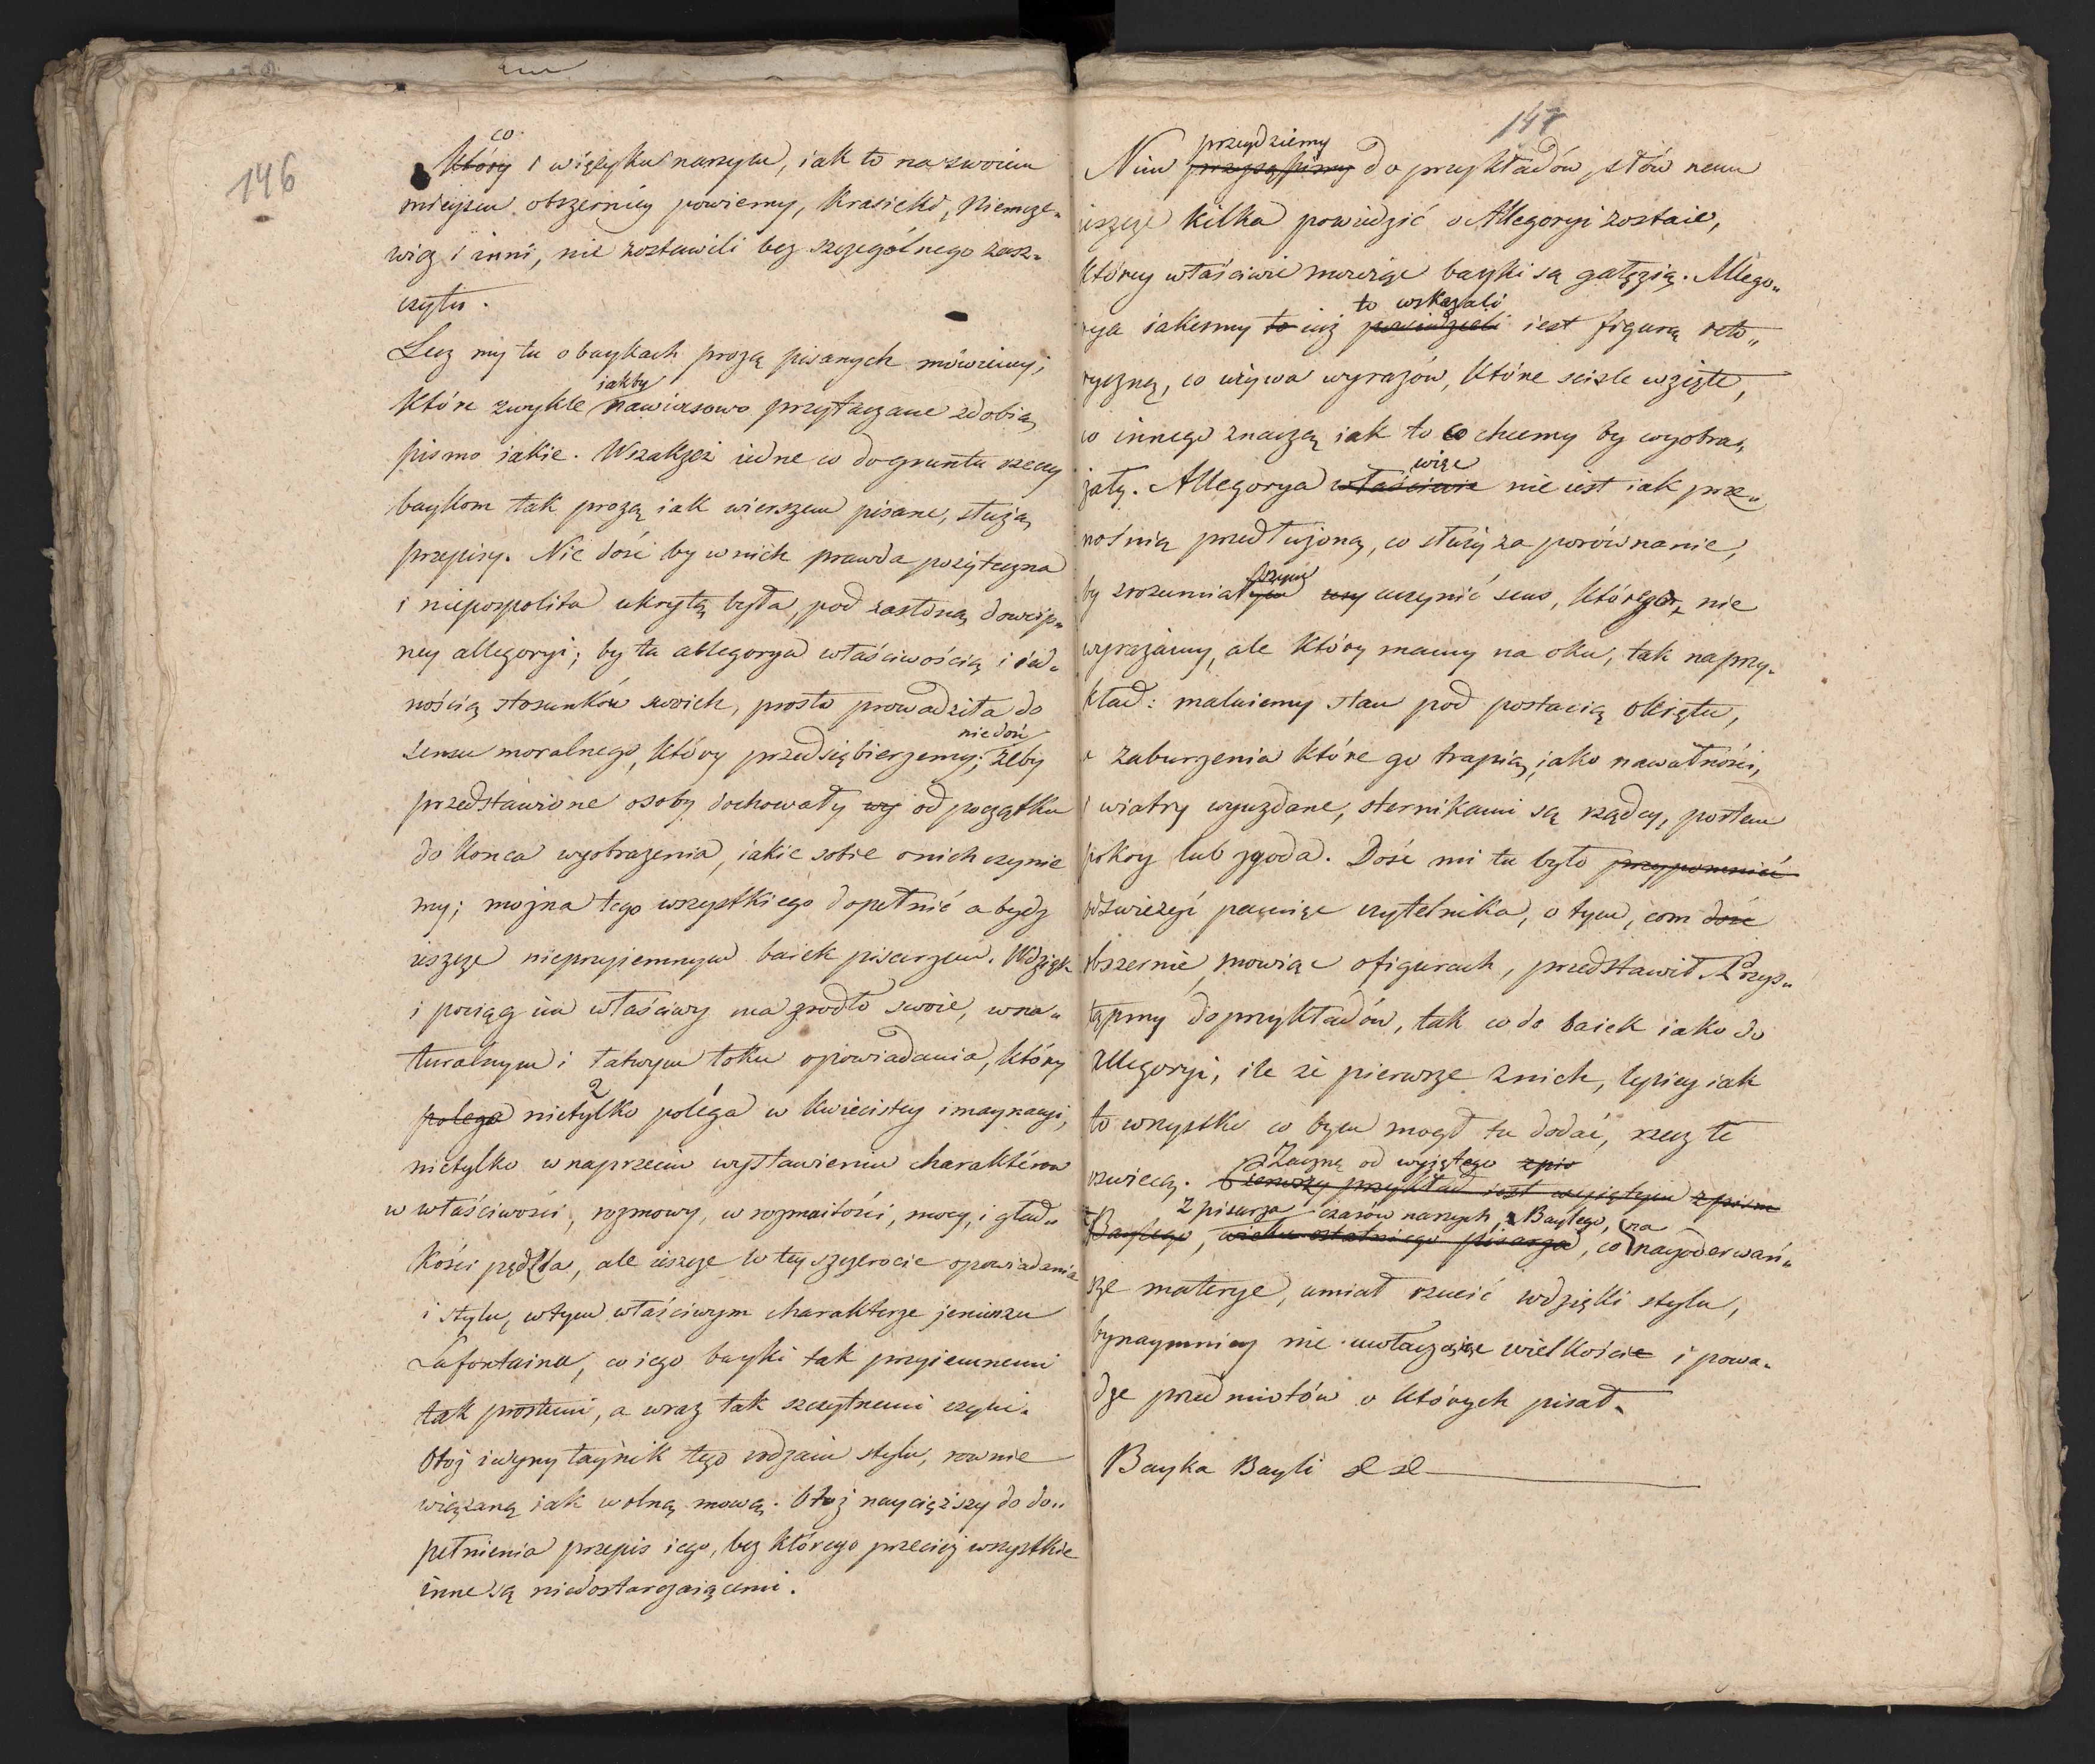 146
co
który i więzyku naszym, iak to na swoim
mieyscu obszerniey powiemy, Krasicki, Niemce„
wicz i inni, nie zostawili bez szczególnego zasz„
czytu.
Lecz my tu o baykach prozą pisanych mówiemy,
iakby
które zwykle nawiasowo przytaczane zdobią
pismo iakie. Wszakżeż iedne co do gruntu rzeczy
baykom tak prozą iak wierszem pisane, służą
przepisy. Nie dość by w nich prawda pożyteczna
i niepospolita ukrytą była, pod zasłoną dowcip„
ney allegoryi; by ta allegorya właściwością i ied„
nością stosunków swoich, prosto prowadziła do
niedość
sensu moralnego, który przedsiębierzemy; żeby
przedstawione osoby dochowały wy od początku
do końca wyobrażenia, iakie sobie o nich czynie
my; można tego wszystkiego dopełnić a bydź
ieszcze nieprzyiemnym baiek pisarzem. Wdzięk
i pociąg im właściwy ma źrodło swoie, w na„
turalnym i łatwym toku opowiadania, który
2
polega nietylko polega w kwiecistey imaynacyi,
nietylko w naprzeciw wystawieniu charakterow
w właściwości, rozmowy, w rozmaitości, mocy, i gład„
kości pędzla, ale ieszcze w tey szczerocie opowiadania
i stylu, w tym właściwym charakterze jeniuszu
Lafontaina, co iego bayki tak przyiemnemi
tak prostemi, a wraz tak szczytnemi czyni.
Otoż iedyny taynik tego rodzaiu stylu, rownie
wiązaną iak wolną mową. Otoż naycięższy do do„
pełnienia przepis iego, bez którego przecież wszystkie
inne są niedostarczaiącemi.
147
przeydziemy
Nim do przykładów, słów nam
ieszcze kilka powiedzić o Allegoryi zostaie,
którey właściwie mowiąc bayki są gałęzią. Allego„
to wskazali
rya iakesmy to iuż powiedzieli iest figurą reto„
ryczną, co używa wyrazów, które scisle wzięte,
co innego znaczą iak to co chcemy by wyobra„
więc
żały. Allegorya właściwie nie iest iak prze„
nośnią przedłużoną, co służy za porównanie,
by zrozumiałym uczynić sens, którego nie
wyrażamy, ale który mamy na oku, tak naprzy„
kład: maluiemy stan pod postacią okrętu,
a zaburzenia które go trapią, iako nawałności,
i wiatry wyuzdane, sternikami są rządcy, portem
pokoy lub zgoda. Dość mi tu było przypomnieć
odświeżyć pamięć czytelnika, o tym, com dość
obszernie mowiąc o figurach, przedstawił. Przys„
tąpmy do przykładów, tak co do baiek iako do
Allegoryi, ile że pierwsze z nich, lepiey iak
to wszystko co bym mogł tu dodać, rzecz tę
Zacznę od wyjętego z pis
oswiecą. Pierwszy przykład iest wyiętym z pism
z pisarza czasów naszych, Baylego, na
Baylego, wieku ostatniego pisarza, co nayoderwań„
sze materye, umiał rzucić wdzięki stylu,
bynaymniey nie uwłaczaiąc wielkości i powa„
dze przedmiotów o których pisał.
Bayka Bayli &c &c